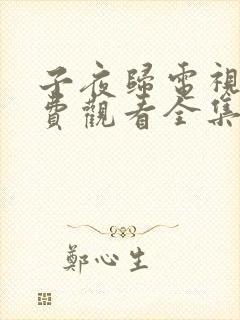 子夜歸電視
費觀看全集
鄭心生